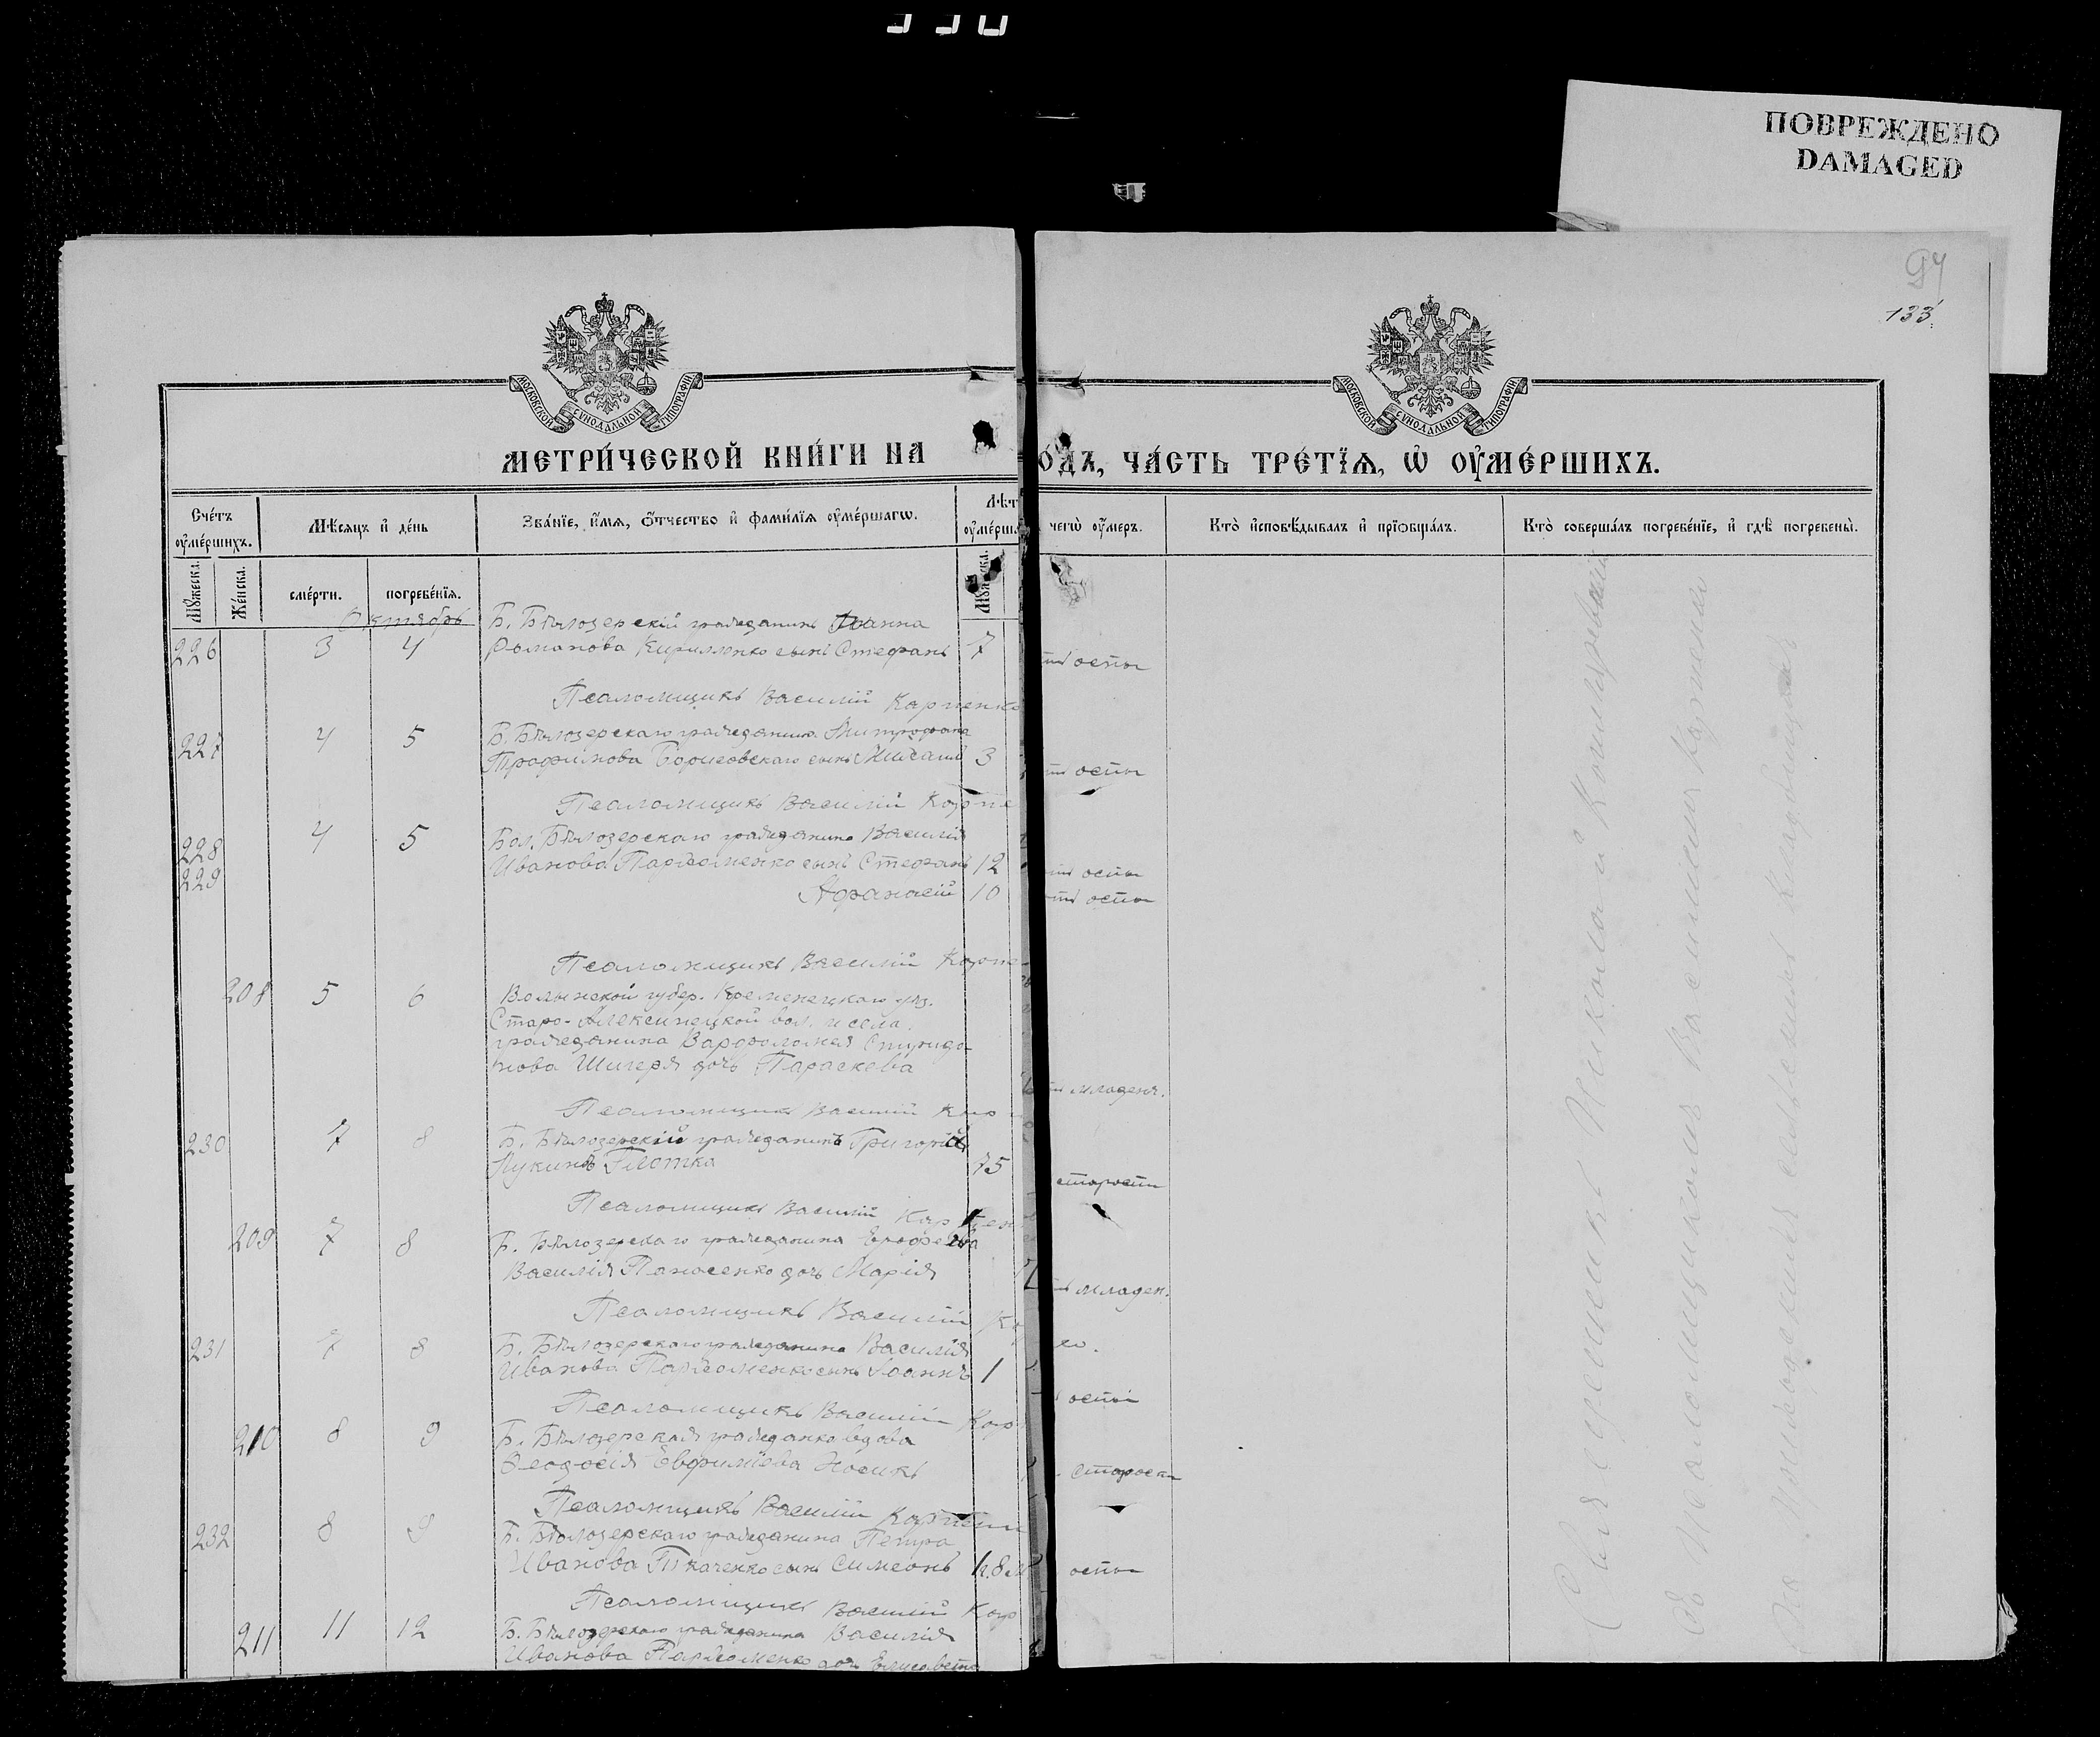 330
ПОВРЕЖДЕНО
DAMAGED
94
133
МОСКОВСКОЙ СѴНОДАЛЬНОЙ ТИПОГРАФІИ
МОСКОВСКОЙ СѴНОДАЛЬНОЙ ТИПОГРАФІИ
МЕТРИ́ЧЕСКОЙ КНИ́ГИ НА
О́ДЪ, ЧА́СТЬ ТРЕ́ТЇѦ, Ѽ ОУ҆МЕ́РШИХЪ.
Сче́тъ оу҆ме́ршихъ.
Мѣ́сяцъ и҆ де́нь
Зва́нїе, и҆́мѧ, ѻ҆́тчество и҆ фами́лїѧ оу҆ме́ршагѡ.
Лѣт
оу҆ме́рша
чегѡ̀ оу҆́меръ.
Кто̀ и҆сповѣ́дывалъ и҆ прїѡбща́лъ.
Кто̀ соверша́лъ погребе́нїе, и҆ гдѣ̀ погребены̀.
Мꙋ́жеска.
Же́нска.
сме́рти.
погребе́нїѧ.
Октябрь
Б. Бѣлозерскій гражданинъ Іоанна
226 3 4 Романова Кириленко сынъ Стефанъ 7
оспы
Псаломщикъ Василій Карпенко
227 4 5 Б. Бѣлозерскаго гражданина Митрофана
Трофимова Борисовскаго сынъ Михаил 3
оспы
Псаломщикъ Василій Карпе
228 4 5 Бол. Бѣлозерскаго гражданина Василія
Иванова Пархоменко сынъ Стефанъ 12
оспы
229 Афанасій 10
оспы
Псаломщикъ Василій Карпе
208 5 6 Волынской губер. Кременецкаго уѣз.
Старо-Алексинецкой вол. и села
гражданина Варфоломея Спиридо-
нова Шигеря дочь Параскева
младенч.
Псаломщикъ Василій Кар
230 7 8 Б. Бѣлозерскій гражданинъ Григорій
Лукинъ Плотка 75
старости
Псаломщикъ Василій Карпен
209 7 8 Б. Бѣлозерскаго гражданина Ерофеева
Василія Панасенко дочь Марія
младен.
Псаломщикъ Василій Ка
231 7 8 Б. Бѣлозерскаго гражданина Василія
Иванова Пархоменко сынъ Іоаннъ 1
оспы
Псаломщикъ Василій Кар
210 8 9 Б. Бѣлозерская гражданка вдова
Ѳеодосія Евфиміева Носикъ
старости
Псаломщикъ Василій Карпен
232 8 9 Б. Бѣлозерскаго гражданина Петра
Иванова Ткаченко сынъ Симеонъ 1г.8м
оспы
Псаломщикъ Василій Кар
211 11 12 Б. Бѣлозерскаго гражданина Василія
Иванова Пархоменко дочь Елисавета
Священникъ Николай
съ Псаломщикомъ Василіемъ Карпенко
на кладбищѣ